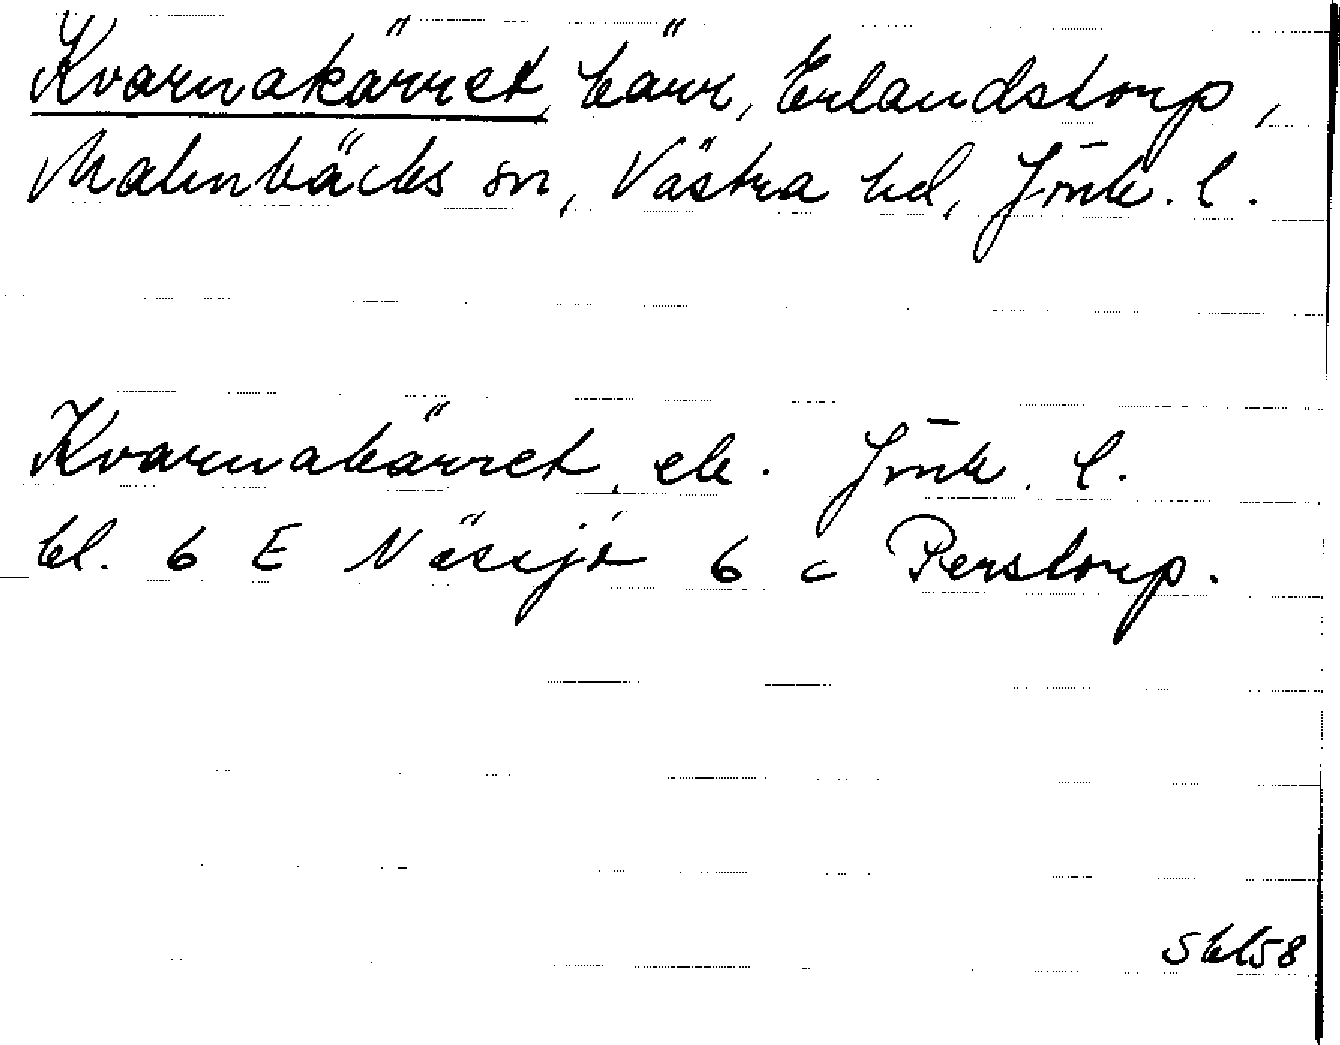 Kvarnakärret, kärr, Erlandstorp,
Malmbäcks sn, Västra hd, Jönk. l.
Kvarnakärret, ek. Jönk. l.
bl. 6 E Nässjö 6 c Perstorp.